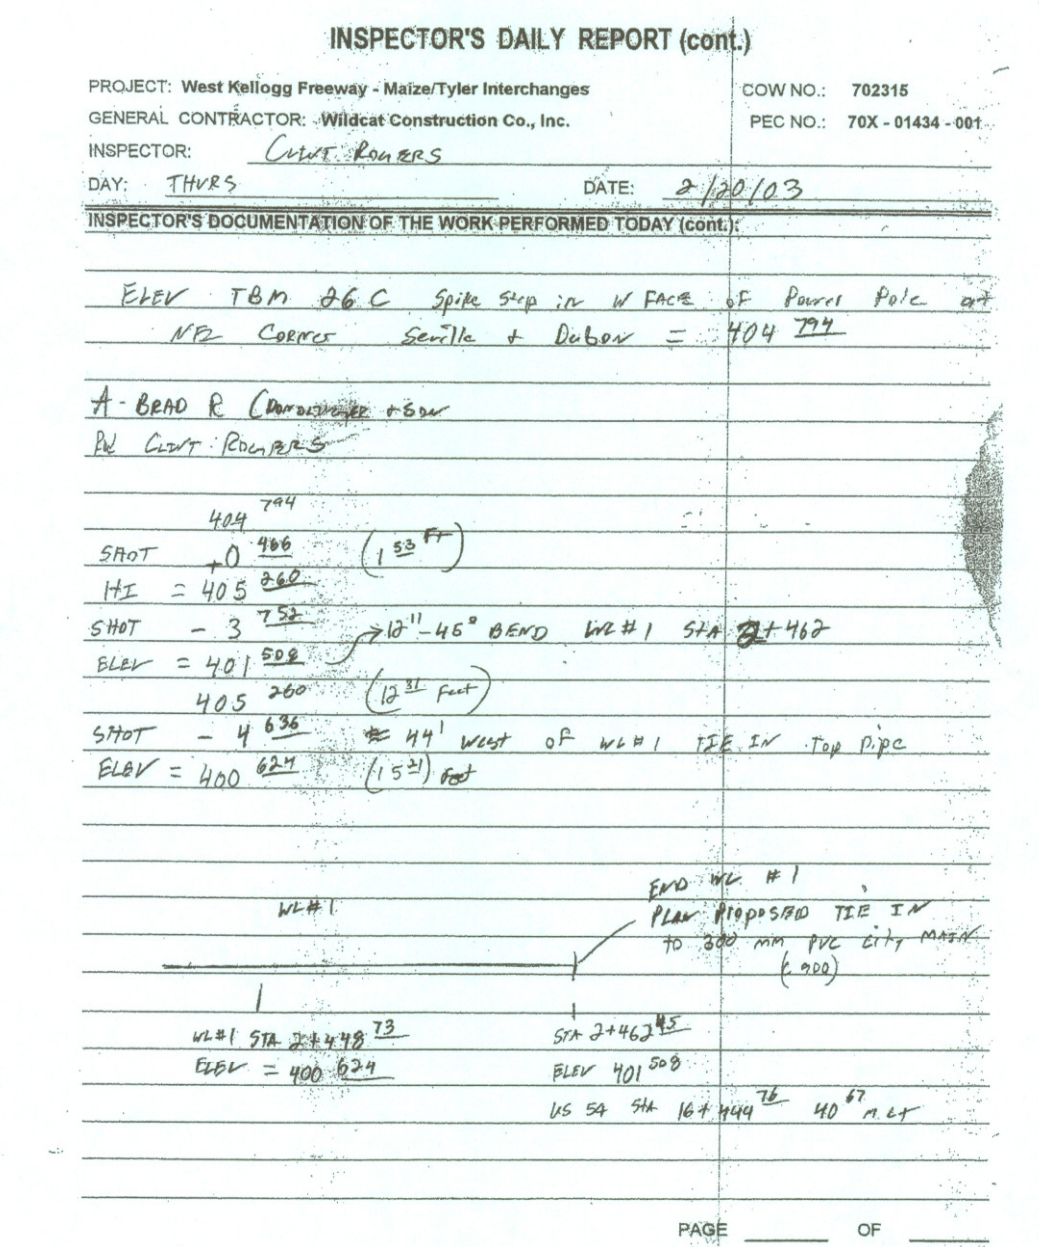 INSPECTOR'S DAILY REPORT (cont.)
PROJECT: West Kellogg Freeway - Maize/Tyler Interchanges COW NO.: 702315
GENERAL CONTRACTOR: Wildcat Construction Co., Inc. PEC NO.: 70X - 01434 - 001
INSPECTOR: CLINT ROGERS
DAY: THURS DATE: 2/20/03
INSPECTOR'S DOCUMENTATION OF THE WORK PERFORMED TODAY (cont.):
ELEV TBM 26 C Spike Step in W FACE OF Power Pole at
NE Corner Seville + Dubon = 404 794
A - BRAD R ( + SON
CLINT ROGERS
404 794
SHOT +0 466 (1 53 FT)
HI = 405 260
SHOT - 3 752 12" - 45° BEND WL #1 STA 2+462
ELEV = 401 508
405 260 (12 31 Feet)
SHOT - 4 636 44' west of WL #1 TIE IN Top pipe
ELEV = 400 624 (15 21) Feet
END WL #1
WL #1 PLAN PROPOSED TIE IN
to 300 mm PVC City MAIN
(C 900)
WL #1 STA 2+448 73 STA 2+462 45
ELEV = 400 624 ELEV 401 508
US 54 STA 16+444 76 40 67 m LT
PAGE OF